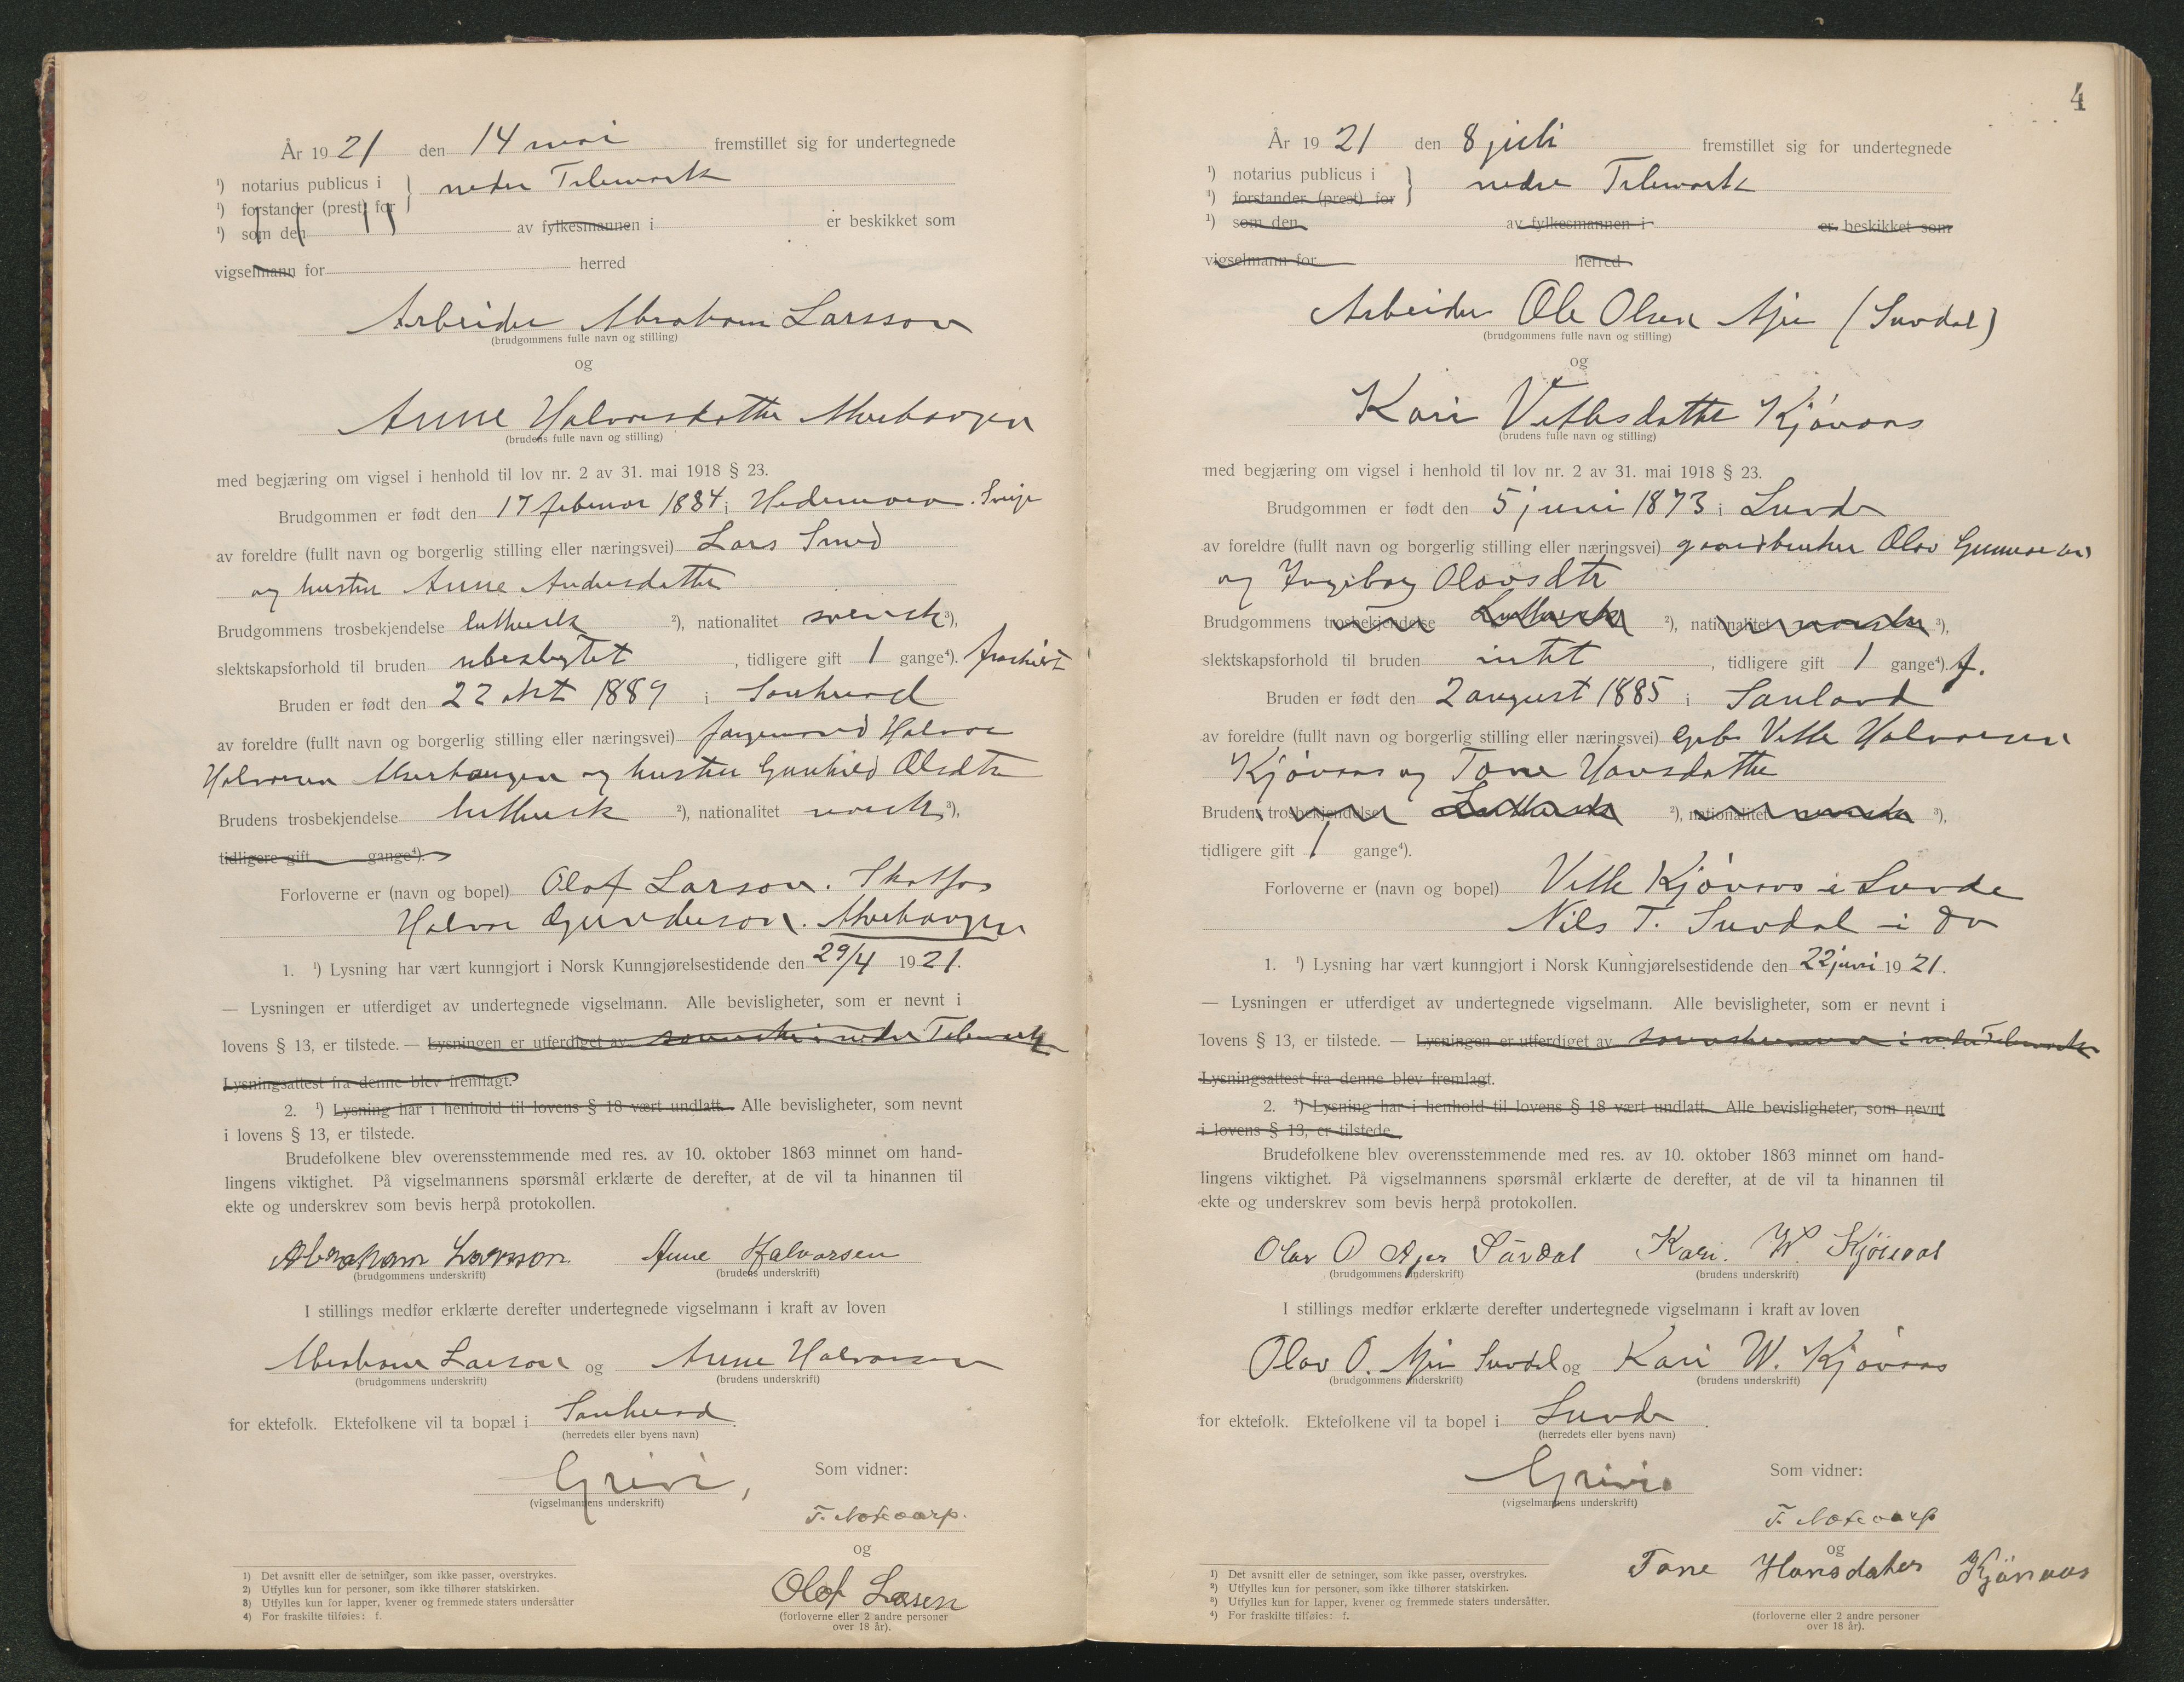 År 19 21 den 14 mai fremstillet sig for undertegnede
¹) notarius publicus i } nedre Telemark
¹) forstander (prest) for
¹) som den av fylkesmannen i er beskikket som
vigselmann for herred
Arbeider Abraham Larsson
(brudgommens fulle navn og stilling)
og
Anne Halvorsdatter
(brudens fulle navn og stilling)
med begjæring om vigsel i henhold til lov nr. 2 av 31. mai 1918 § 23.
Brudgommen er født den 17 februar 1884 i Hedemora. Sverige
av foreldre (fullt navn og borgerlig stilling eller næringsvei) Lars Smed
og hustru Anne Andersdatter
Brudgommens trosbekjendelse luthersk ²), nationalitet svensk ³),
slektskapsforhold til bruden ubeslegtet, tidligere gift 1 gange⁴). fraskilt
Bruden er født den 22 okt 1889 i Sauherad
av foreldre (fullt navn og borgerlig stilling eller næringsvei) Halvor
Halvorsen og hustru Gunhild Olsdtr
Brudens trosbekjendelse luthersk ²), nationalitet norsk ³),
tidligere gift gange⁴).
Forloverne er (navn og bopel) Olof Larson. Skotfos
Halvor Gunderson.
1. ¹) Lysning har vært kunngjort i Norsk Kunngjørelsestidende den 29/4 1921.
— Lysningen er utferdiget av undertegnede vigselmann. Alle bevisligheter, som er nevnt i
lovens § 13, er tilstede. — Lysningen er utferdiget av i nedre Telemark
Lysningsattest fra denne blev fremlagt.
2. ¹) Lysning har i henhold til lovens § 18 vært undlatt. Alle bevisligheter, som nevnt
i lovens § 13, er tilstede.
Brudefolkene blev overensstemmende med res. av 10. oktober 1863 minnet om hand-
lingens viktighet. På vigselmannens spørsmål erklærte de derefter, at de vil ta hinannen til
ekte og underskrev som bevis herpå protokollen.
Abraham Larsson. Anne Halvorsen
(brudgommens underskrift) (brudens underskrift)
I stillings medfør erklærte derefter undertegnede vigselmann i kraft av loven
Abraham Larson og Anne Halvorsen
(brudgommens underskrift) (brudens underskrift)
for ektefolk. Ektefolkene vil ta bopæl i Sauherad
(herredets eller byens navn)
Som vidner:
(vigselmannens underskrift)
og
Olof Larsen
(forloverne eller 2 andre personer
over 18 år).
1) Det avsnitt eller de setninger, som ikke passer, overstrykes.
2) Utfylles kun for personer, som ikke tilhører statskirken.
3) Utfylles kun for lapper, kvener og fremmede staters undersåtter
4) For fraskilte tilføies: f.
4
År 19 21 den 8 juli fremstillet sig for undertegnede
¹) notarius publicus i } nedre Telemark
¹) forstander (prest) for
¹) som den av fylkesmannen i er beskikket som
vigselmann for herred
Arbeider Ole Olsen Ajer (Suvdal)
(brudgommens fulle navn og stilling)
og
Kari Vetlesdatter Kjønaas
(brudens fulle navn og stilling)
med begjæring om vigsel i henhold til lov nr. 2 av 31. mai 1918 § 23.
Brudgommen er født den 5 juni 1873 i Lunde
av foreldre (fullt navn og borgerlig stilling eller næringsvei) gaardbruker Olav Gunnarsen
og Ingeborg Olavsdtr
Brudgommens trosbekjendelse Luthersk ²), nationalitet norsk ³),
slektskapsforhold til bruden intet, tidligere gift 1 gange⁴). f.
Bruden er født den 2 august 1885 i Sauland
av foreldre (fullt navn og borgerlig stilling eller næringsvei) Gpb. Vetle Halvorsen
Kjønaas og Tone Hansdatter
Brudens trosbekjendelse Luthersk ²), nationalitet norsk ³),
tidligere gift 1 gange⁴).
Forloverne er (navn og bopel) Vetle Kjønaas i Lunde
Nils T. Suvdal i do
1. ¹) Lysning har vært kunngjort i Norsk Kunngjørelsestidende den 22 juni 19 21.
— Lysningen er utferdiget av undertegnede vigselmann. Alle bevisligheter, som er nevnt i
lovens § 13, er tilstede. — Lysningen er utferdiget av sorenskriveren i nedre Telemark
Lysningsattest fra denne blev fremlagt.
2. ¹) Lysning har i henhold til lovens § 18 vært undlatt. Alle bevisligheter, som nevnt
i lovens § 13, er tilstede.
Brudefolkene blev overensstemmende med res. av 10. oktober 1863 minnet om hand-
lingens viktighet. På vigselmannens spørsmål erklærte de derefter, at de vil ta hinannen til
ekte og underskrev som bevis herpå protokollen.
Olav O Ajer Suvdal Kari. W.
(brudgommens underskrift) (brudens underskrift)
I stillings medfør erklærte derefter undertegnede vigselmann i kraft av loven
Olav O. Ajer Suvdal og Kari W. Kjønaas
(brudgommens underskrift) (brudens underskrift)
for ektefolk. Ektefolkene vil ta bopel i Lunde.
(herredets eller byens navn)
Som vidner:
(vigselmannens underskrift)
og
Tone Hansdater Kjönaas
(forloverne eller 2 andre personer
over 18 år).
¹) Det avsnitt eller de setninger, som ikke passer, overstrykes.
²) Utfylles kun for personer, som ikke tilhører statskirken.
³) Utfylles kun for lapper, kvener og fremmede staters undersåtter.
⁴) For fraskilte tilføies: f.